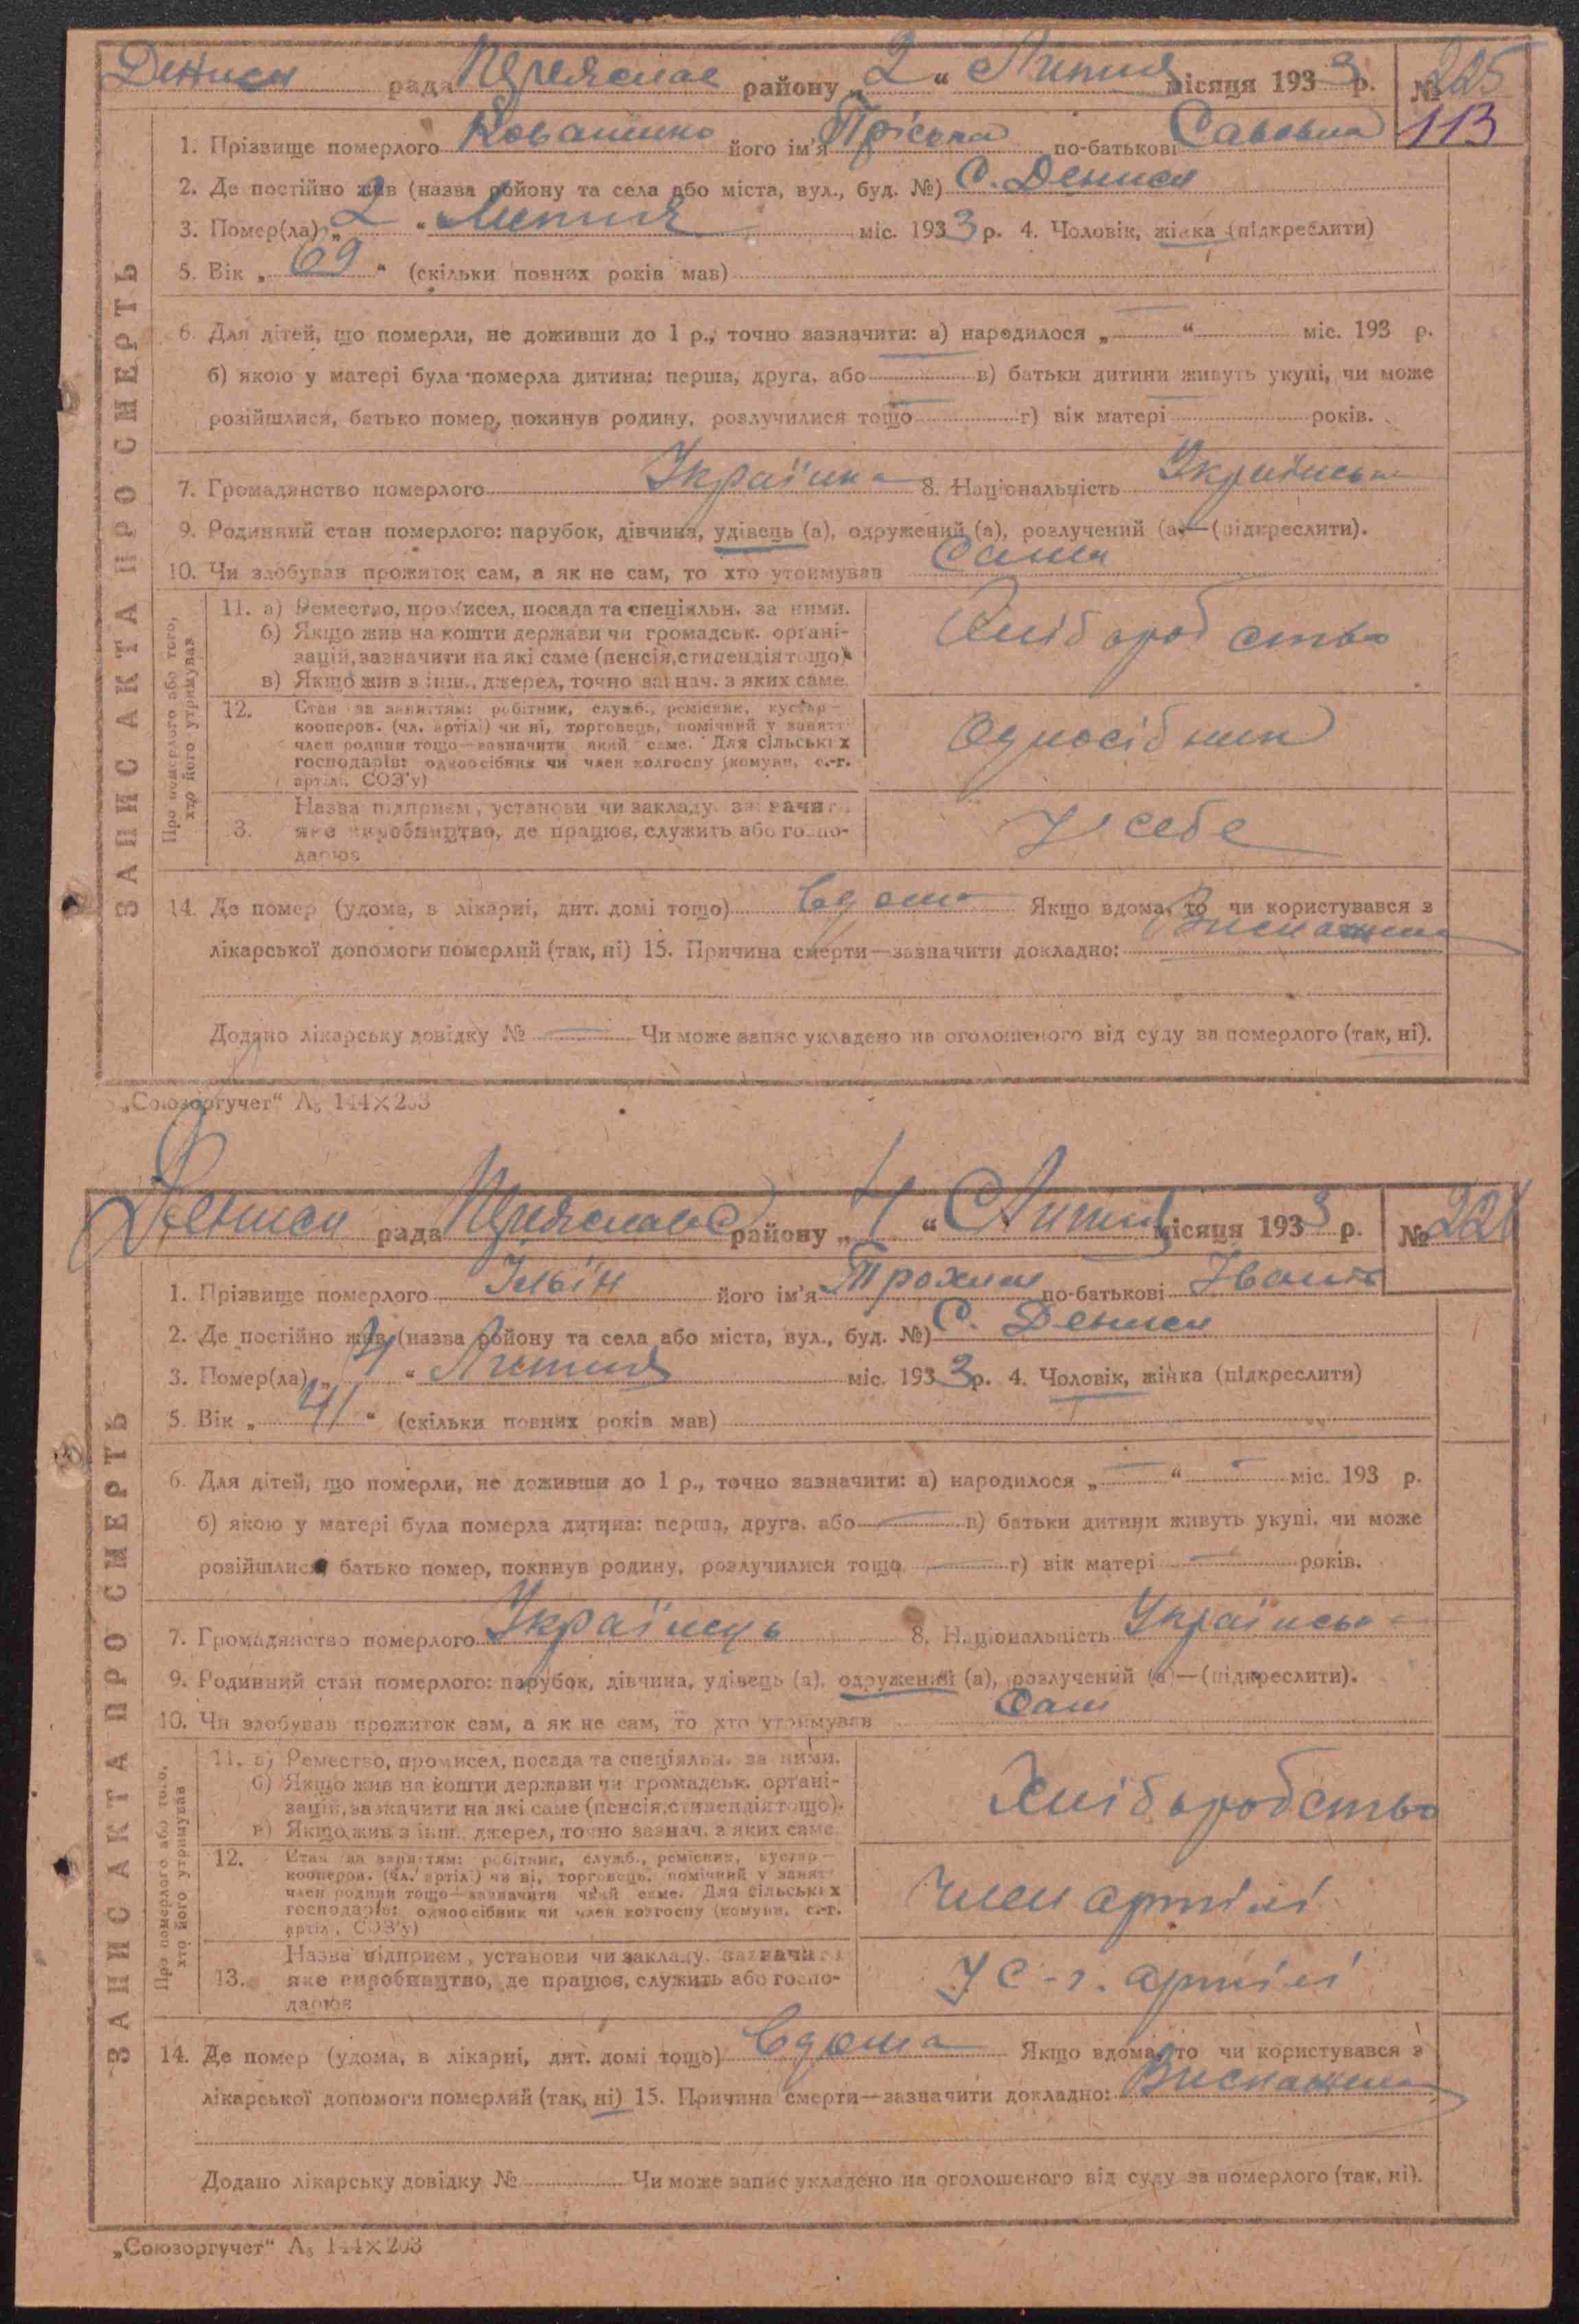 Дениси рада Переяслав району „2“ Липня місяця 1933 р. № 225
113
1. Прізвище померлого його ім'я Пріська по-батькові Савовна
2. Де постійно жив (назва району та села або міста, вул., буд. №) С. Дениси
3. Помер(ла) „2“ Липня міс. 1933 р. 4. Чоловік, жінка (підкреслити)
5. Вік „69“ (скільки повних років мав)
6. Для дітей, що померли, не доживши до 1 р., точно зазначити: а) народилося „—“ міс. 193 р.
б) якою у матері була померла дитина: перша, друга, або — в) батьки дитини живуть укупі, чи може
розійшлися, батько помер, покинув родину, розлучилися тощо — г) вік матері — років.
7. Громадянство померлого Українка 8. Національність
9. Родинний стан померлого: парубок, дівчина, удівець (а), одружений (а), розлучений (а)—(підкреслити).
10. Чи здобував прожиток сам, а як не сам, то хто утримував Сама
ЗАПИС АКТА ПРО СМЕРТЬ
Про померлого або того,
хто його утримував
11. а) Ремество, промисел, посада та спеціяльн. за ними.
б) Якщо жив на кошти держави чи громадськ. органі-
зацій, зазначити на які саме (пенсія, стипендія тощо).
в) Якщо жив з інш. джерел, точно зазнач. з яких саме.
Хліборобство
12. Стан за заняттям: робітник, служб., ремісник, кустар—
кооперов. (чл. артілі) чи ні, торговець, помічний у занятт
член родини тощо—зазначити який саме. Для сільських
господарів: одноосібник чи член колгоспу (комуни, с.-г.
артілі, СОЗ'у)
Односібник
13. Назва підприєм., установи чи закладу, зазначити
яке виробництво, де працює, служить або госпо-
дарює
У себе
14. Де помер (удома, в лікарні, дит. домі тощо) Вдома Якщо вдома, то чи користувався з
лікарської допомоги померлий (так, ні) 15. Причина смерти—зазначити докладно:
Додано лікарську довідку № — Чи може запис укладено на оголошеного від суду за померлого (так, ні).
„Союзоргучет“ А₅ 144×203
Дениси рада Переяслав району „4“ Липня місяця 1933 р. №
1. Прізвище померлого Ільїн його ім'я Трохим по-батькові
2. Де постійно жив (назва району та села або міста, вул., буд. №) С. Дениси
3. Помер(ла) „4“ Липня міс. 1933 р. 4. Чоловік, жінка (підкреслити)
5. Вік „41“ (скільки повних років мав)
6. Для дітей, що померли, не доживши до 1 р., точно зазначити: а) народилося „—“ — міс. 193 р.
б) якою у матері була померла дитина: перша, друга, або — в) батьки дитини живуть укупі, чи може
розійшлися, батько помер, покинув родину, розлучилися тощо — г) вік матері — років.
7. Громадянство померлого Українець 8. Національність
9. Родинний стан померлого: парубок, дівчина, удівець (а), одружений (а), розлучений (а)—(підкреслити).
10. Чи здобував прожиток сам, а як не сам, то хто утримував Сам
ЗАПИС АКТА ПРО СМЕРТЬ
Про померлого або того,
хто його утримував
11. а) Ремество, промисел, посада та спеціяльн. за ними.
б) Якщо жив на кошти держави чи громадськ. органі-
зацій, зазначити на які саме (пенсія, стипендія тощо).
в) Якщо жив з інш. джерел, точно зазнач. з яких саме.
Хліборобство
12. Стан за заняттям: робітник, служб., ремісник, кустар—
кооперов. (чл. артілі) чи ні, торговець, помічний у занятт
член родини тощо—зазначити який саме. Для сільських
господарів: одноосібник чи член колгоспу (комуни, с.-г.
артілі, СОЗ'у)
Член артілі
13. Назва підприєм., установи чи закладу, зазначити
яке виробництво, де працює, служить або госпо-
дарює
У С-г. артілі
14. Де помер (удома, в лікарні, дит. домі тощо) Вдома Якщо вдома, то чи користувався з
лікарської допомоги померлий (так, ні) 15. Причина смерти—зазначити докладно:
Додано лікарську довідку № Чи може запис укладено на оголошеного від суду за померлого (так, ні).
„Союзоргучет“ А₅ 144×203